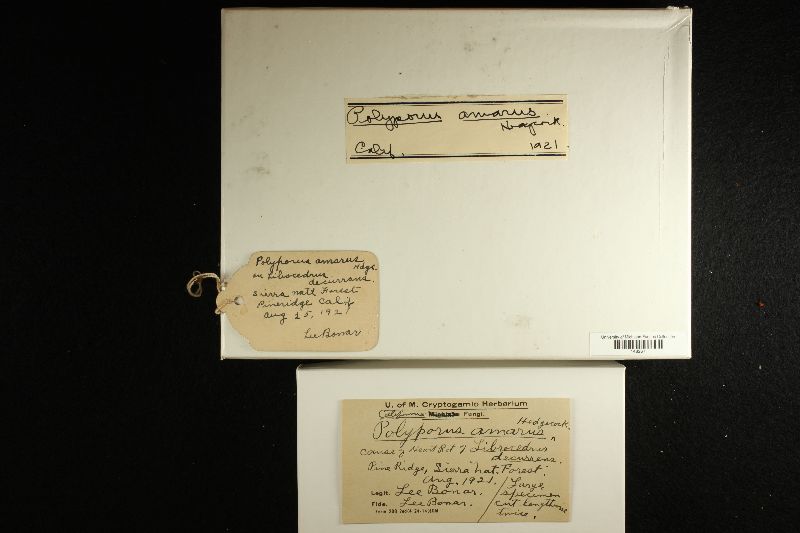 Polyporus amarus
Hedgcock.
Calif. 1921
Polyporus amarus
Hdgk.
on Libocedrus
decurrens.
Sierra natl Forest
Pineridge Calif
Aug 25, 192
Lee Bonar
University of Michigan Fungus Collection
U. of M. Cryptogamic Herbarium
California Fungi.
Hedgcock.
Polyporus amarus
Cause of Heart Rot of Librocedrus
decurrens.
Pine Ridge, Sierra Nat. Forest.
Aug. 1921.
Legit. Lee Bonar.
Fide. Lee Bonar.
Large
specimen
cut lengthwise
twice.